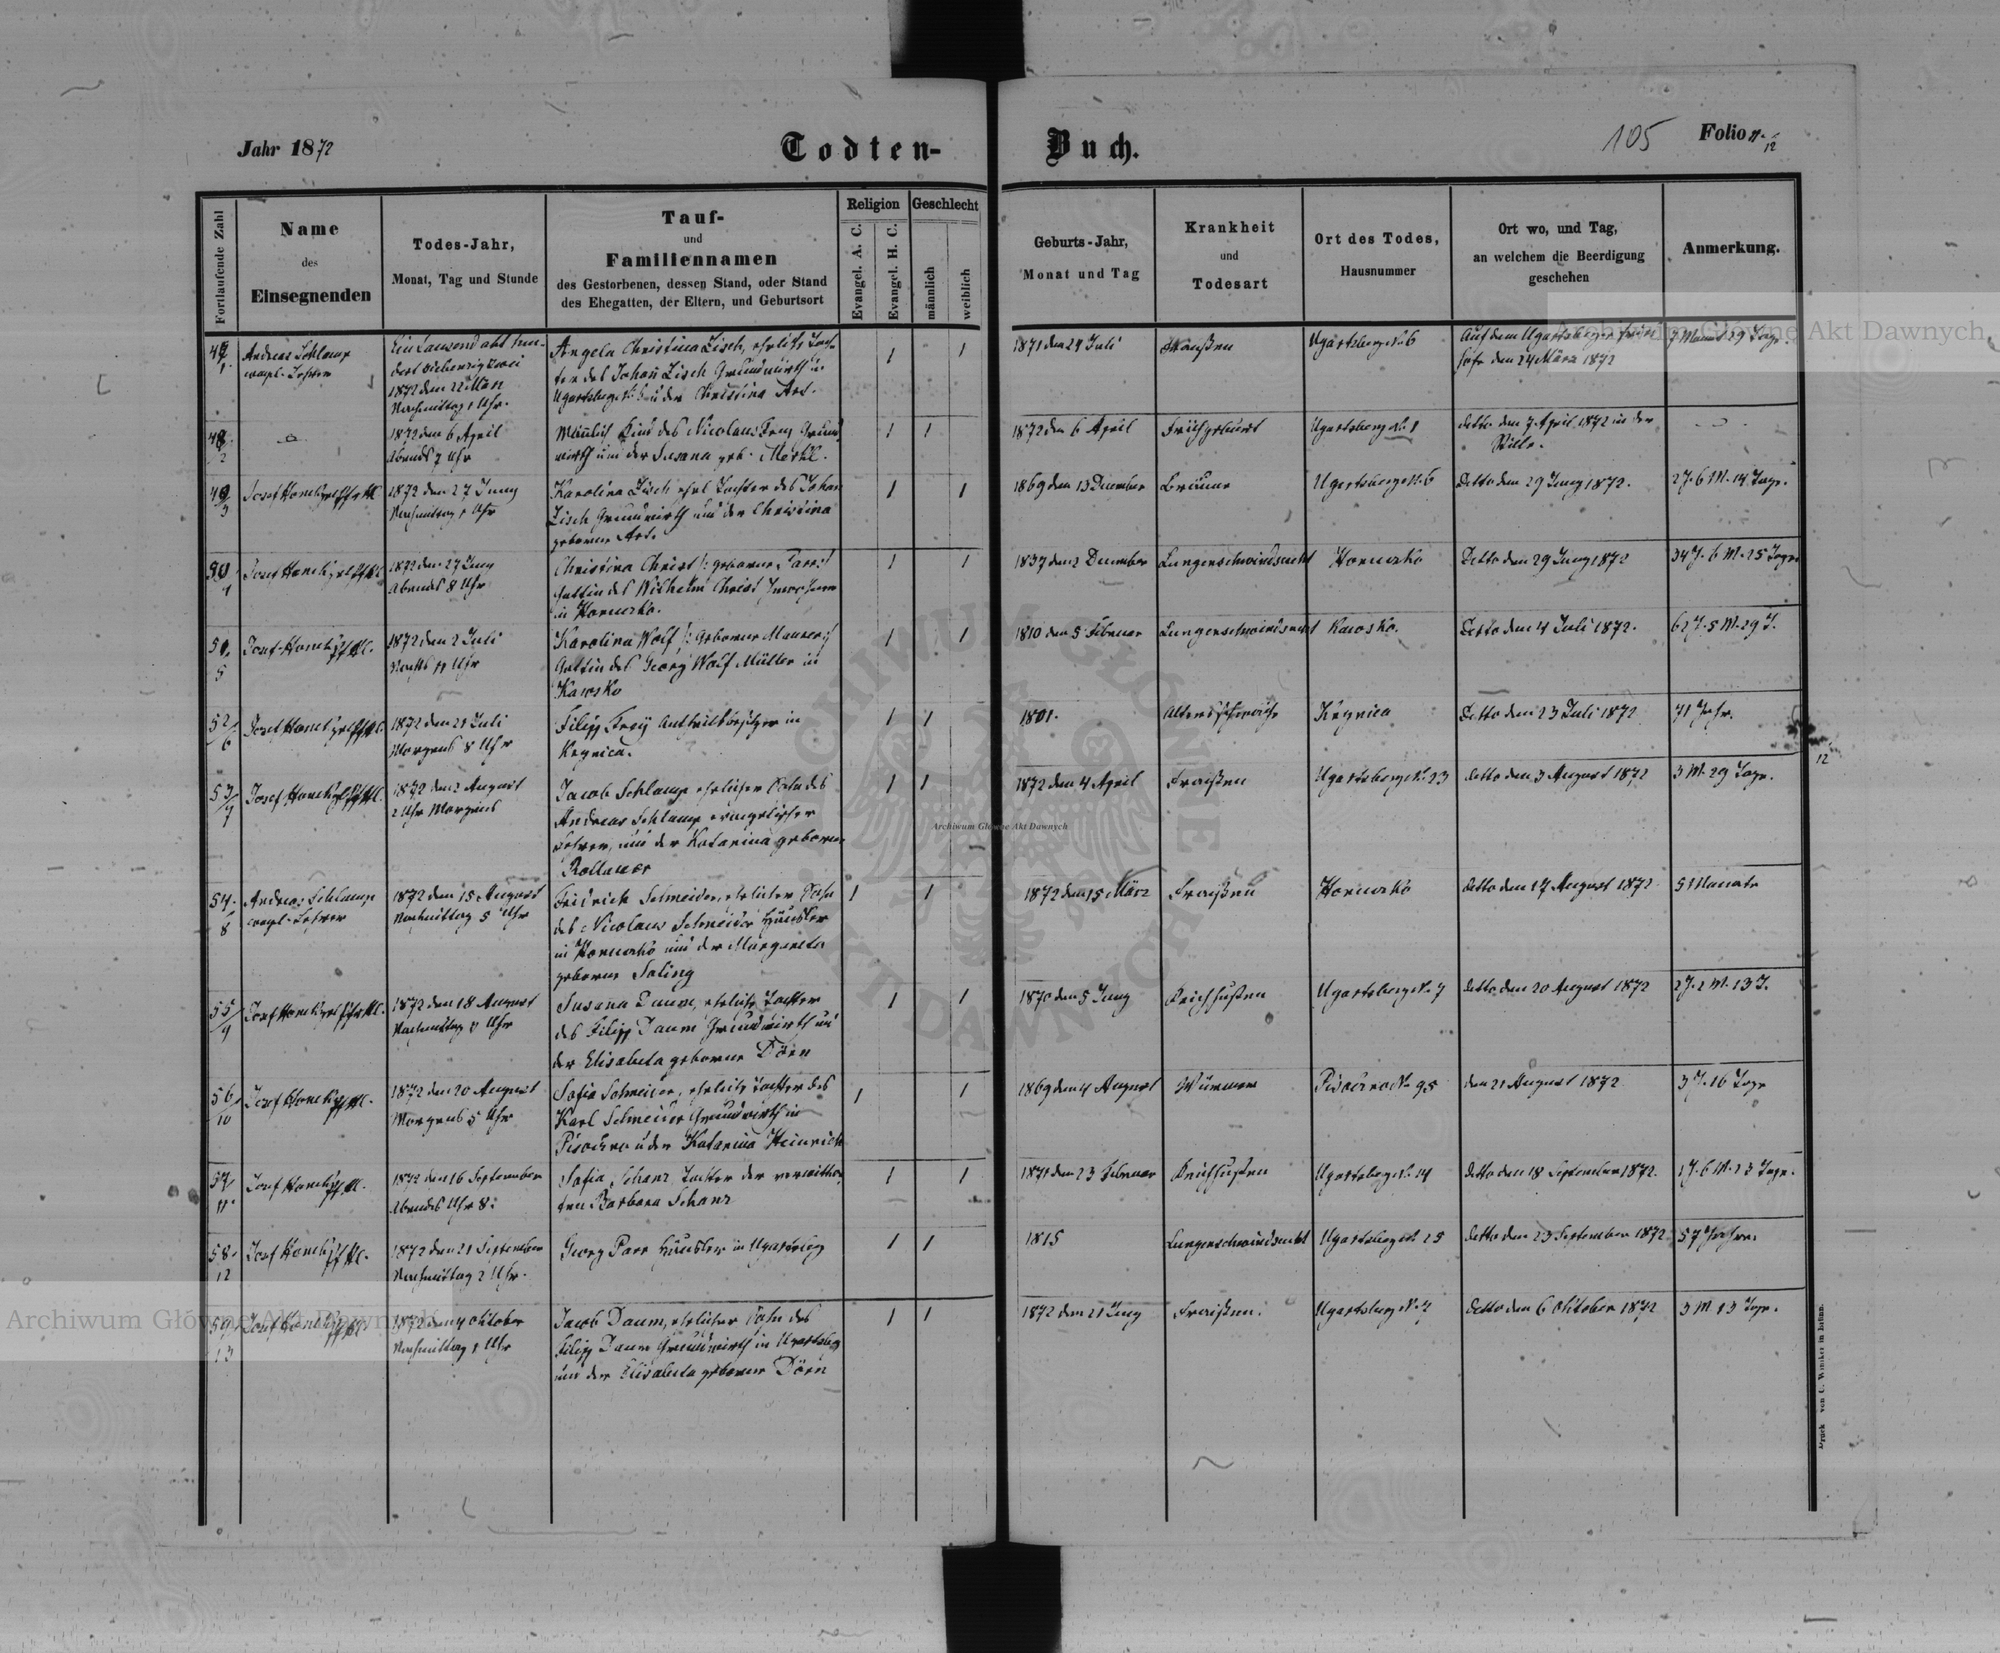 Jahr 1872
Todten-
Buch.
105
Folio
12
Fortlaufende Zahl
Name
des
Einsegnenden
Todes-Jahr,
Monat, Tag und Stunde
Tauf-
und
Familiennamen
des Gestorbenen, dessen Stand, oder Stand
des Ehegatten, der Eltern, und Geburtsort
Religion
Evangel. A. C.
Evangel. H. C.
Geschlecht
männlich
weiblich
Geburts-Jahr,
Monat und Tag
Krankheit
und
Todesart
Ort des Todes,
Hausnummer
Ort wo, und Tag,
an welchem die Beerdigung
geschehen
Anmerkung.
1
Andreas Schlamp
evagl. Lehrer
Ein Tausend acht hun-
dert siebenzig zwei
1872 den 22 März
Nachmittag 1 Uhr.
Angela Christina Lisch, eheliche Toch-
ter des Johañ Lisch Grundwirth in
Ugartsberg und der Christina
1
1
1871 den 24 Juli
Fraißen
Ugartsberg No 6
Auf dem Ugartsberger Fried
hofe den 24 März 1872
7 Monat 29 Tage.
2
1872 den 6 April
Abends 7 Uhr
Mänlich Kind des Nicolaus Frey Grund
wirth und der Susana geb.
1
1
1872 den 6 April
Frühgeburt
Ugartsberg No 1
detto den 7 April 1872 in der
Stille.
3
Josef Honcky
1872 den 27 Juny
Nachmittag 1 Uhr
Karolina Lisch ehel Tochter des Johan
Lisch Grundwirth und der Christina
geborne
1
1
1869 den 13 December
Bräune
Ugartsberg No 6
Detto den 29 Juny 1872.
2 J. 6 M. 14 Tage.
50
4
Josef Honcky
1872 den 27 Juny
Abends 8 Uhr
Christina Christ /: geborne Parr :/
Gattin des Wilhelm Christ
in Horucko.
1
1
1837 den 2 December
Lungenschwindsucht
Horucko
Detto den 29 Juny 1872
34 J. 6 M. 25 Tage
51.
5
Josef Honcky
1872 den 2 Juli
Nachts 11 Uhr
Karolina Wolf /: Geborne Maurer :/
Gattin des Georg Wolf Müller in
Kawsko
1
1
1810 den 5 Februar
Lungenschwindsucht
Kawsko.
Detto den 4 Juli 1872.
62 J. 5 M. 29 T.
52
6
Josef Honcky
1872 den 21 Juli
Morgens 8 Uhr
Filipp Frey Antheilsbesitzer in
Krynica.
1
1
1801.
Altersschwäche
Krynica
Detto den 23 Juli 1872
71 Jahr.
12
53
7
Josef Honcky
1872 den 2 August
2 Uhr Morgens
Jacob Schlamp ehelicher Sohn des
Andreas Schlamp evangelischer
Lehrer, und der Katarina geborne
1
1
1872 den 4 April
Fraißen
Ugartsberg No 23
detto den 3 August 1872
3 M. 29 Tage.
54.
8
Andreas Schlamp
evagl. Lehrer
1872 den 15 August
Nachmittag 5 Uhr
Fridrich Schneider, ehelicher Sohn
des Nicolaus Schneider Häusler
in Horucko und der Margareta
geborne Saling
1
1
1872 den 15 März
Fraißen
Horucko
detto den 17 August 1872
5 Monate
55
9
Josef Honcky
1872 den 18 August
Susaña Daum, eheliche Tochter
des Filipp Daum Grundwirth und
der Elisabeta geborne Dörn
1
1
1870 den 5 Juny
Keichhusten
Ugartsberg No 7
detto den 20 August 1872
2 J. 2 M. 13 T.
56
10
Josef Honcky
1872 den 20 August
Morgens 5 Uhr
Sofia Schneider, eheliche Tochter des
Karl Schneider Grundwirth in
Pisoczna u der Katarina Heinrich
1
1
1869 den 4 August
Würmer
Pisoczna No 95
den 21 August 1872
3 J. 16 Tage
57
11.
Josef Honcky
1872 den 16 September
Abends Uhr 8.
Sofia Schanz Tochter der verwittwe
ten Barbara Schanz
1
1
1871 den 23 Februar
Keichhusten
Ugartsberg No 14
detto den 18 September 1872.
1 J. 6 M. 23 Tage.
58.
12
Josef Honcky
1872 den 21 September
Nachmittag 2 Uhr.
Georg Parr Häusler in Ugartsberg
1
1
1815
Lungenschwindsucht
Ugartsberg No 25
detto den 23 September 1872.
57 Jahre.
59
13
Josef Honcky
1872 den 4 Oktober
Nachmittag 1 Uhr
Jacob Daum, ehelicher Sohn des
Filipp Daum Grundwirth in Ugartsberg
und der Elisabeta geborne Dörn
1
1
1872 den 21 Juny
Fraißen.
Ugartsberg No 7
detto den 6 Oktober 1872
3 M 13 Tage.
Druck von C. Winiker in Brünn.
Archiwum Główne Akt Dawnych
Archiwum Główne Akt Dawnych
Archiwum Główne Akt Dawnych
ARCHIWUM GŁÓWNE AKT DAWNYCH